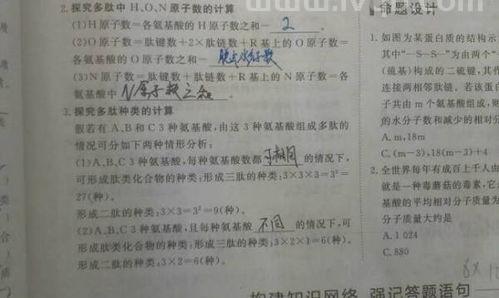 2.探究多肽中H、O、N原子数的计算
(1)H原子数=各氨基酸的H原子数之和-2
(2)O原子数=肽键数+2×肽链数+R基上的O原子数=
各氨基酸的O原子数之和-脱去水分子数
(3)N原子数=肽键数+肽链数+R基上的N原子数=各
氨基酸中N原子数之和
3.探究多肽种类的计算
假若有A、B和C 3种氨基酸,由这3种氨基酸组成多肽的
情况可分如下两种情形分析:
(1)A、B、C三种氨基酸,每种氨基酸数都 的情况下,
可形成肽类化合物的种类:形成三肽的种类:3×3×3=3³=
27(种)。
形成二肽的种类:3×3=3²=9(种)。
(2)A、B、C 3种氨基酸,且每种氨基酸不同的情况下,可
形成肽类化合物的种类:形成三肽的种类:3×2×1=6(种)。
形成二肽的种类:3×2=6(种)。
构建知识网络 强记答题语句
命题设计
1.如图为某蛋白质的结构示
其中"—S—S—"为由两个"
(巯基)构成的二硫键,其作
连接两相邻肽链。若该蛋白
子共由m个氨基酸组成,则
的水分子数和减少的相对分
A.m,18m
C.(m-3),18(m-3)+4
2.全世界每年有成百上千人
就是一种毒蘑菇的毒素,它
基酸的平均相对分子质量为
分子质量大约是
A.1 024
C.880